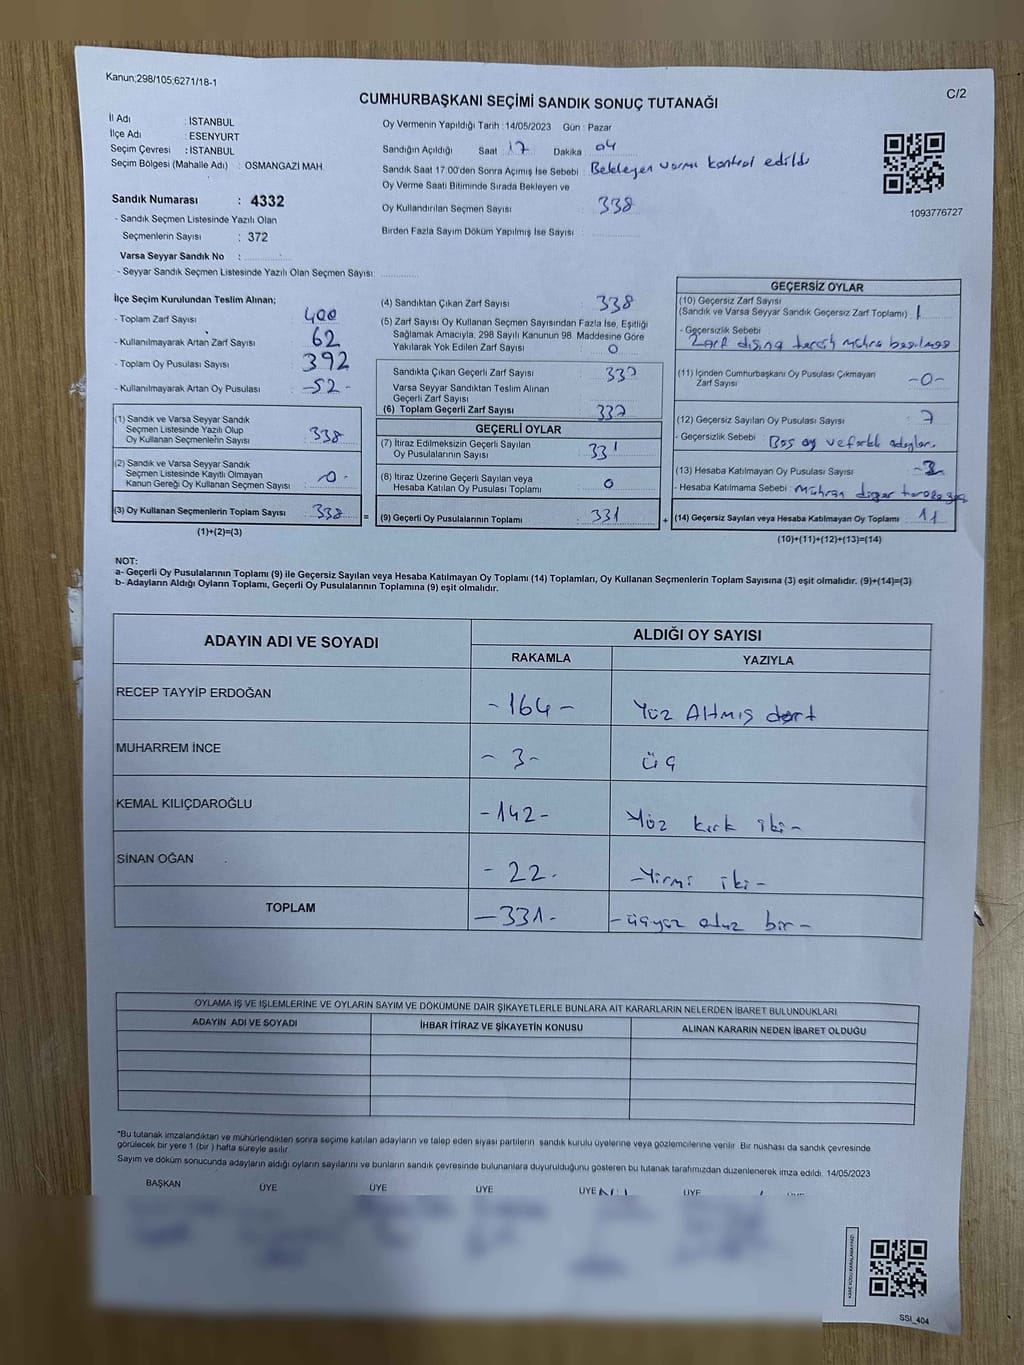 Kanun;298/105;6271/18-1
C/2
CUMHURBAŞKANI SEÇİMİ SANDIK SONUÇ TUTANAĞI
İl Adı : İSTANBUL
İlçe Adı : ESENYURT
Seçim Çevresi : İSTANBUL
Seçim Bölgesi (Mahalle Adı) : OSMANGAZİ MAH.
Sandık Numarası : 4332
- Sandık Seçmen Listesinde Yazılı Olan
Seçmenlerin Sayısı : 372
Varsa Seyyar Sandık No :
- Seyyar Sandık Seçmen Listesinde Yazılı Olan Seçmen Sayısı:
Oy Vermenin Yapıldığı Tarih : 14/05/2023 Gün : Pazar
Sandığın Açıldığı Saat : 17 Dakika : 04
Sandık Saat 17:00'den Sonra Açımış İse Sebebi : Bekleyen varmı kontrol edildi
Oy Verme Saati Bitiminde Sırada Bekleyen ve
Oy Kullandırılan Seçmen Sayısı : 338
Birden Fazla Sayım Döküm Yapılmış İse Sayısı :
1093776727
İlçe Seçim Kurulundan Teslim Alınan;
- Toplam Zarf Sayısı : 400
- Kullanılmayarak Artan Zarf Sayısı : 62
- Toplam Oy Pusulası Sayısı : 392
- Kullanılmayarak Artan Oy Pusulası : -52-
(1) Sandık ve Varsa Seyyar Sandık
Seçmen Listesinde Yazılı Olup
Oy Kullanan Seçmenlerin Sayısı : 338
(2) Sandık ve Varsa Seyyar Sandık
Seçmen Listesinde Kayıtlı Olmayan
Kanun Gereği Oy Kullanan Seçmen Sayısı : -0-
(3) Oy Kullanan Seçmenlerin Toplam Sayısı : 338 =
(1)+(2)=(3)
(4) Sandıktan Çıkan Zarf Sayısı : 338
(5) Zarf Sayısı Oy Kullanan Seçmen Sayısından Fazla İse, Eşitliği
Sağlamak Amacıyla; 298 Sayılı Kanunun 98. Maddesine Göre
Yakılarak Yok Edilen Zarf Sayısı : 0
Sandıkta Çıkan Geçerli Zarf Sayısı : 337
Varsa Seyyar Sandıktan Teslim Alınan
Geçerli Zarf Sayısı :
(6) Toplam Geçerli Zarf Sayısı : 337
GEÇERLİ OYLAR
(7) İtiraz Edilmeksizin Geçerli Sayılan
Oy Pusulalarının Sayısı : 331
(8) İtiraz Üzerine Geçerli Sayılan veya
Hesaba Katılan Oy Pusulası Toplamı : 0
(9) Geçerli Oy Pusulalarının Toplamı : 331 +
GEÇERSİZ OYLAR
(10) Geçersiz Zarf Sayısı
(Sandık ve Varsa Seyyar Sandık Geçersiz Zarf Toplamı) : 1
- Geçersizlik Sebebi
Zarf dışına tercih mührü basılması
(11) İçinden Cumhurbaşkanı Oy Pusulası Çıkmayan
Zarf Sayısı : -0-
(12) Geçersiz Sayılan Oy Pusulası Sayısı : 7
- Geçersizlik Sebebi : Boş oy ve farklı adaylar.
(13) Hesaba Katılmayan Oy Pusulası Sayısı :
- Hesaba Katılmama Sebebi : Mührün diger
(14) Geçersiz Sayılan veya Hesaba Katılmayan Oy Toplamı : 11
(10)+(11)+(12)+(13)=(14)
NOT:
a- Geçerli Oy Pusulalarının Toplamı (9) ile Geçersiz Sayılan veya Hesaba Katılmayan Oy Toplamı (14) Toplamları, Oy Kullanan Seçmenlerin Toplam Sayısına (3) eşit olmalıdır. (9)+(14)=(3)
b- Adayların Aldığı Oyların Toplamı, Geçerli Oy Pusulalarının Toplamına (9) eşit olmalıdır.
ADAYIN ADI VE SOYADI
ALDIĞI OY SAYISI
RAKAMLA YAZIYLA
RECEP TAYYİP ERDOĞAN -164- Yüz Altmış dört
MUHARREM İNCE -3- üç
KEMAL KILIÇDAROĞLU -142- Yüz kırk iki-
SİNAN OĞAN -22- -Yirmi iki-
TOPLAM -331- -üçyüz otuz bir-
OYLAMA İŞ VE İŞLEMLERİNE VE OYLARIN SAYIM VE DÖKÜMÜNE DAİR ŞİKAYETLERLE BUNLARA AİT KARARLARIN NELERDEN İBARET BULUNDUKLARI
ADAYIN ADI VE SOYADI İHBAR İTİRAZ VE ŞİKAYETİN KONUSU ALINAN KARARIN NEDEN İBARET OLDUĞU
*Bu tutanak imzalandıktan ve mühürlendikten sonra seçime katılan adayların ve talep eden siyasi partilerin sandık kurulu üyelerine veya gözlemcilerine verilir. Bir nüshası da sandık çevresinde
görülecek bir yere 1 (bir) hafta süreyle asılır.
Sayım ve döküm sonucunda adayların aldığı oyların sayılarını ve bunların sandık çevresinde bulunanlara duyurulduğunu gösteren bu tutanak tarafımızdan düzenlenerek imza edildi. 14/05/2023
BAŞKAN ÜYE ÜYE ÜYE ÜYE ÜYE ÜYE
KARE KODU KARALAMAYINIZ!
SSI_404